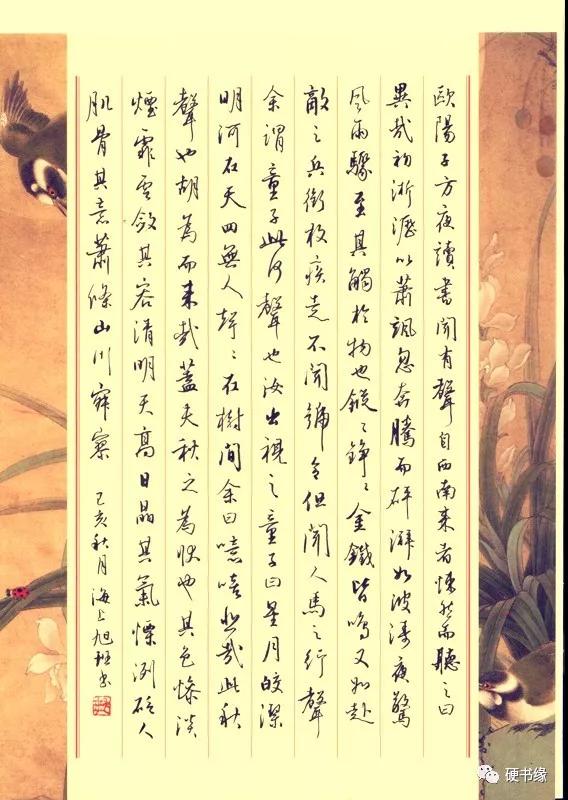 歐陽子方夜讀書聞有聲自西南来者悚然而聽之曰
異哉初淅瀝以蕭颯忽奔騰而砰湃如波濤夜驚
風雨驟至其觸於物也鏦〻錚〻金鐵皆鳴又如赴
敵之兵銜枚疾走不聞號令但聞人馬之行聲
余謂童子此何聲也汝出視之童子曰星月皎潔
明河在天四無人聲〻在樹間余曰噫嘻悲哉此秋
聲也胡為而来哉蓋夫秋之為狀也其色慘淡
煙霏雲斂其容清明天高日晶其氣慄冽砭人
肌骨其意蕭條山川寂寥 己亥秋月海上旭桓書
硬书缘